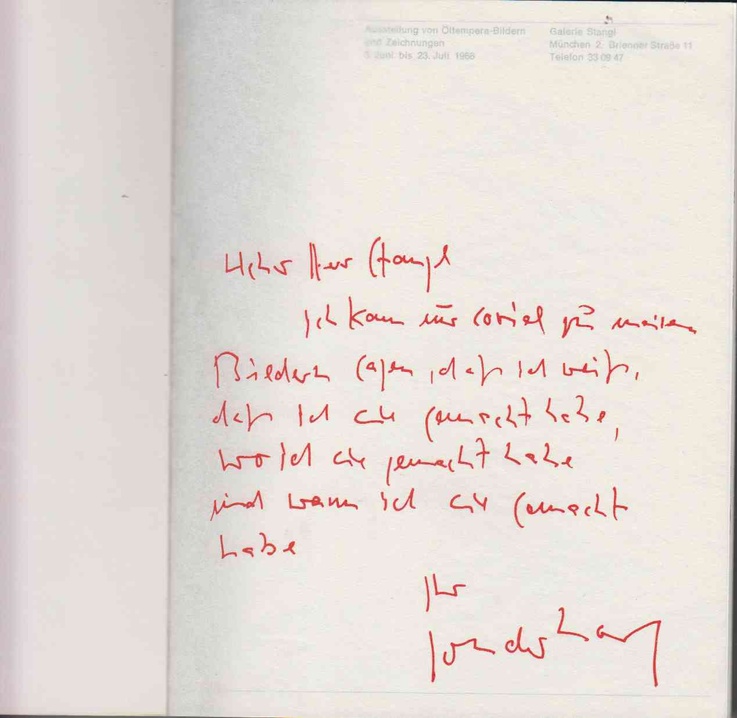 Ausstellung von Öltempera-Bildern
und Zeichnungen
3. Juni bis 23. Juli 1966
Galerie Stangl
München 2, Brienner Straße 11
Telefon
Lieber Herr Stangl
Ich kann nur soviel zu meinen
Bildern sagen, daß ich weiß,
daß ich sie gemacht habe,
wo ich sie gemacht habe
und wann ich sie gemacht
habe
Ihr
Sonderborg